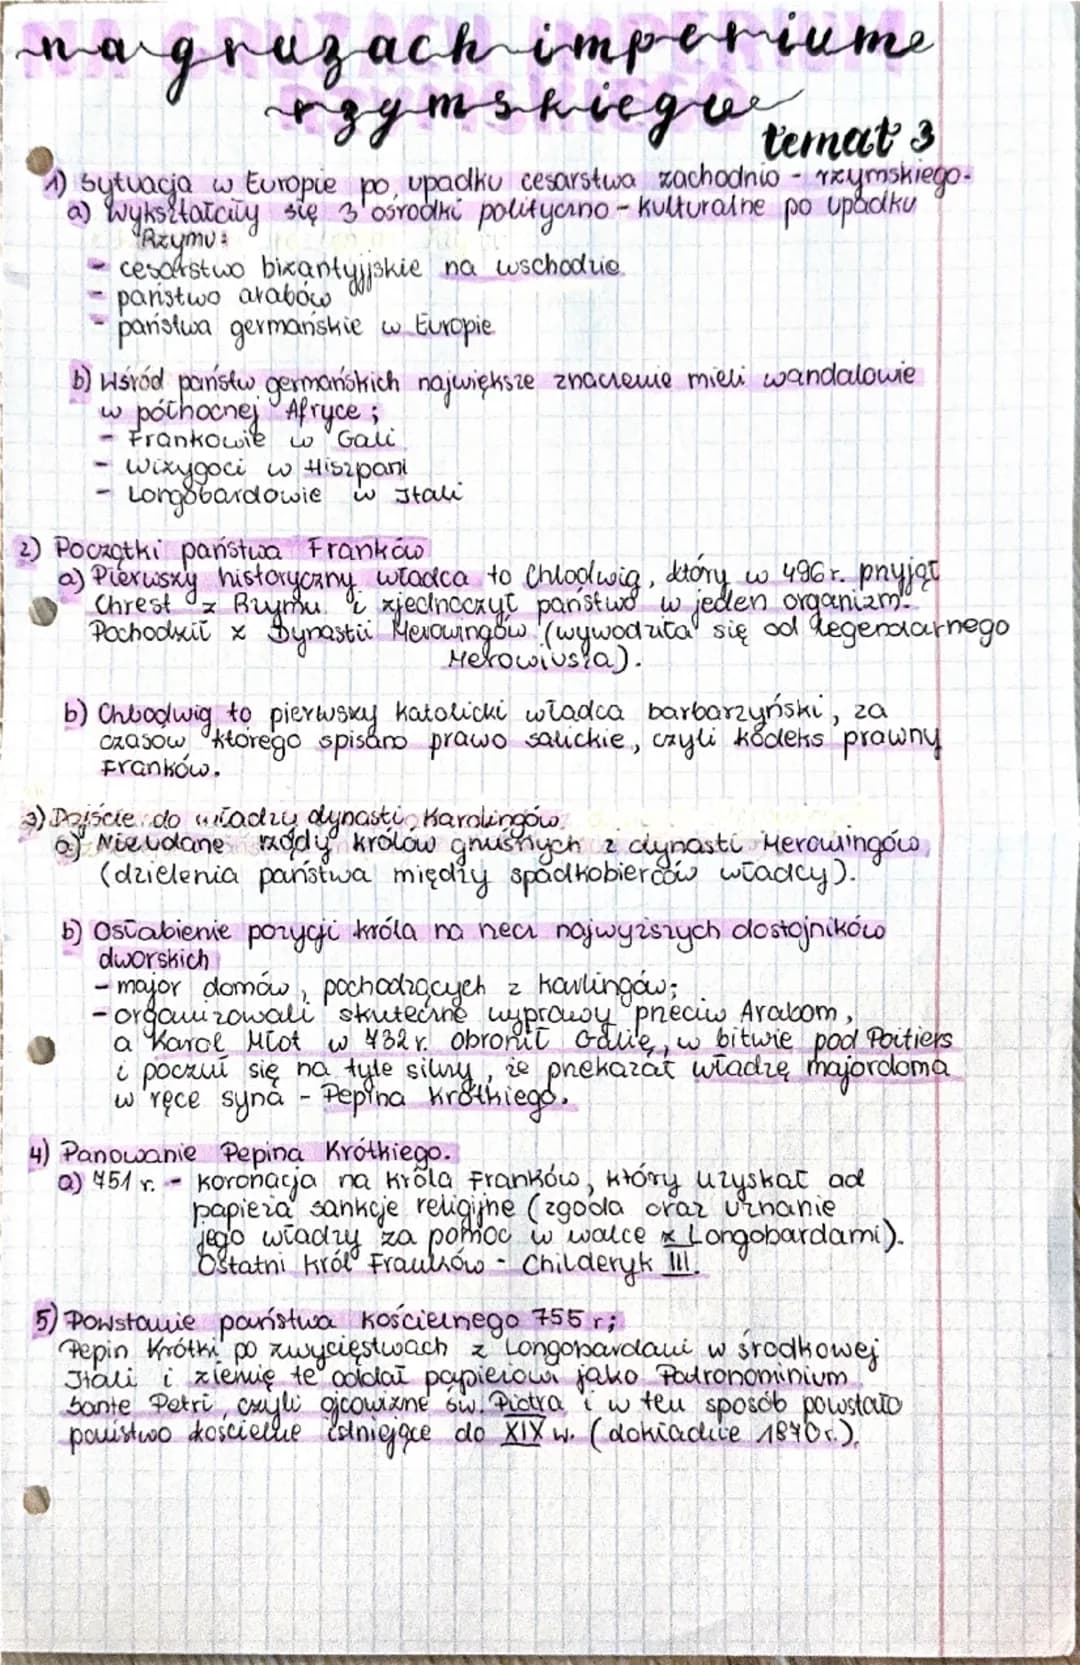 na gruzach imperium
rzymskiego
temat 3
1) Sytuacja w Europie po upadku cesarstwa zachodnio - rzymskiego.
a) Wykształciły się 3 ośrodki polityczno - kulturalne po upadku
Rzymu:
- cesarstwo bizantyjjskie na wschodzie
- państwo arabów
- państwa germańskie w Europie
b) Wśród państw germańskich największe znaczenie mieli wandalowie
w północnej Afryce;
- Frankowie w Gali
- Wizygoci w Hiszpani
- Longobardowie w Itali
2) Początki państwa Franków
a) Pierwszy historyczny władca to Chlodwig, który w 496 r. przyjął
Chrest z Rzymu i zjednoczył państwo w jeden organizm.
Pochodził z Dynastii Merowingów (wywodziła się od legendarnego
Merowiusza).
b) Chlodwig to pierwszy katolicki władca barbarzyński, za
czasów którego spisano prawo salickie, czyli kodeks prawny
Franków.
3) Dojście do władzy dynasti Karolingów.
a) Nieudane rządy królów gnuśnych z dynasti Merowingów
(dzielenia państwa między spadkobierców władcy).
b) Osłabienie pozycji króla na rzecz najwyższych dostojników
dworskich
- major domów, pochodzących z Karlingów;
- organizowali skuteczne wyprawy przeciw Arabom,
a Karol Młot w 732 r. obronił Galię, w bitwie pod Poitiers
i poczuł się na tyle silny, że przekazał władzę majordoma
w ręce syna - Pepina Krótkiego.
4) Panowanie Pepina Krótkiego.
a) 751 r. - koronacja na króla Franków, który uzyskał od
papieża sankcje religijne (zgoda oraz uznanie
jego władzy za pomoc w walce z Longobardami).
Ostatni król Franków - Childeryk III.
5) Powstanie państwa kościelnego 755 r;
Pepin Krótki po zwycięstwach z Longobardami w środkowej
Itali i ziemię te oddał papieżowi jako Patronominium
Sante Petri, czyli ojcowiznę św. Piotra i w ten sposób powstało
państwo kościelne istniejące do XIX w. (dokładnie 1870 r.).